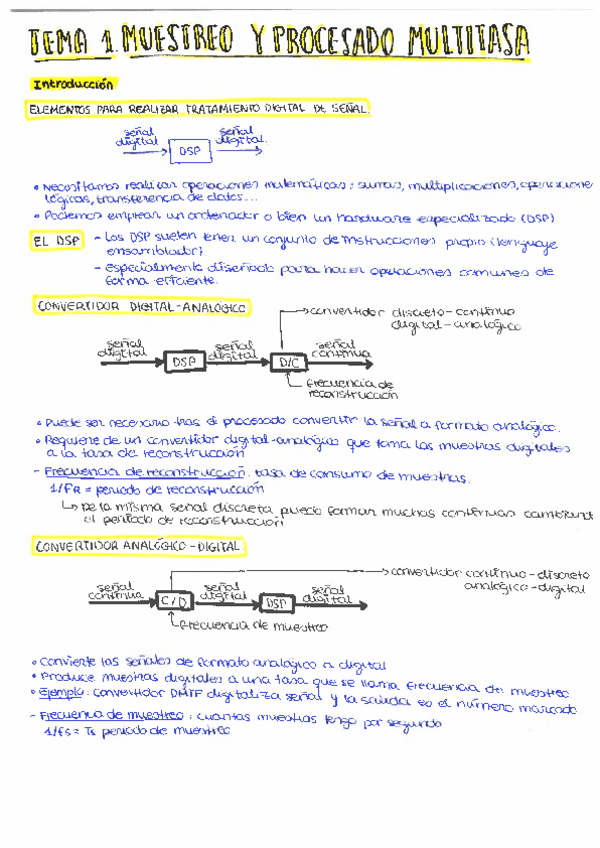 TEMA 1. MUESTREO Y PROCESADO MULTITASA
Introducción
ELEMENTOS PARA REALIZAR TRATAMIENTO DIGITAL DE SEÑAL.
señal digital
DSP
señal digital
• Necesitamos realizar operaciones matemáticas: sumas, multiplicaciones, operaciones
lógicas, transferencia de datos...
• Podemos emplear un ordenador o bien un hardware especializado (DSP)
EL DSP
- Los DSP suelen tener un conjunto de instrucciones propio (lenguaje
ensamblador)
- Especialmente diseñado para hacer operaciones comunes de
forma eficiente.
CONVERTIDOR DIGITAL-ANALÓGICO
convertidor discreto-continuo
digital-analógico
señal digital
DSP
señal digital
D/C
señal continua
frecuencia de
reconstrucción
• Puede ser necesario tras el procesado convertir la señal a formato analógico.
• Requiere de un convertidor digital-analógico que toma las muestras digitales
a la tasa de reconstrucción
- Frecuencia de reconstrucción: tasa de consumo de muestras.
1/FR = periodo de reconstrucción
De la misma señal discreta puedo formar muchas continuas cambiand
el periodo de reconstrucción
CONVERTIDOR ANALÓGICO-DIGITAL
convertidor continuo-discreto
analógico-digital
señal continua
C/D
señal digital
DSP
señal digital
frecuencia de muestreo
• Convierte las señales de formato analógico a digital
• Produce muestras digitales a una tasa que se llama frecuencia de muestreo
• Ejemplo: convertidor DMTF digitaliza señal y la salida es el número marcado.
- Frecuencia de muestreo: cuantas muestras tengo por segundo
1/fs = Ts periodo de muestreo